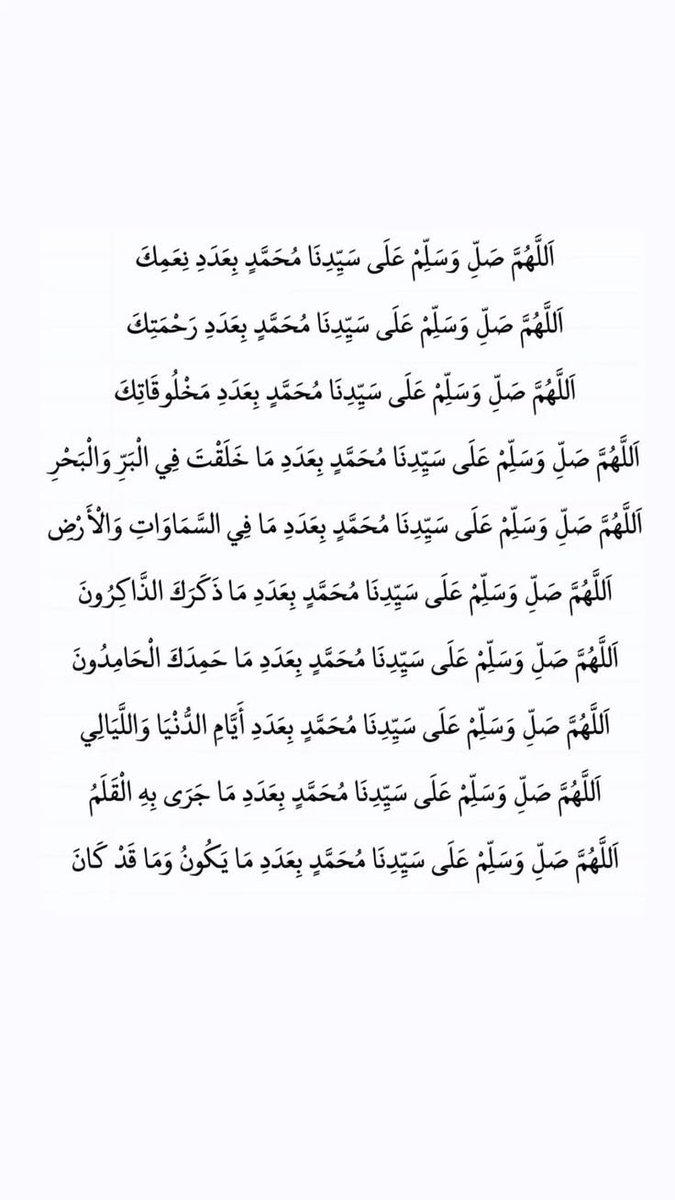 اَللَّهُمَّ صَلِّ وَسَلِّمْ عَلَى سَيِّدِنَا مُحَمَّدٍ بِعَدَدِ نِعَمِكَ
اَللَّهُمَّ صَلِّ وَسَلِّمْ عَلَى سَيِّدِنَا مُحَمَّدٍ بِعَدَدِ رَحْمَتِكَ
اَللَّهُمَّ صَلِّ وَسَلِّمْ عَلَى سَيِّدِنَا مُحَمَّدٍ بِعَدَدِ مَخْلُوقَاتِكَ
اَللَّهُمَّ صَلِّ وَسَلِّمْ عَلَى سَيِّدِنَا مُحَمَّدٍ بِعَدَدِ مَا خَلَقْتَ فِي الْبَرِّ وَالْبَحْرِ
اَللَّهُمَّ صَلِّ وَسَلِّمْ عَلَى سَيِّدِنَا مُحَمَّدٍ بِعَدَدِ مَا فِي السَّمَاوَاتِ وَالْأَرْضِ
اَللَّهُمَّ صَلِّ وَسَلِّمْ عَلَى سَيِّدِنَا مُحَمَّدٍ بِعَدَدِ مَا ذَكَرَكَ الذَّاكِرُونَ
اَللَّهُمَّ صَلِّ وَسَلِّمْ عَلَى سَيِّدِنَا مُحَمَّدٍ بِعَدَدِ مَا حَمِدَكَ الْحَامِدُونَ
اَللَّهُمَّ صَلِّ وَسَلِّمْ عَلَى سَيِّدِنَا مُحَمَّدٍ بِعَدَدِ أَيَّامِ الدُّنْيَا وَاللَّيَالِي
اَللَّهُمَّ صَلِّ وَسَلِّمْ عَلَى سَيِّدِنَا مُحَمَّدٍ بِعَدَدِ مَا جَرَى بِهِ الْقَلَمُ
اَللَّهُمَّ صَلِّ وَسَلِّمْ عَلَى سَيِّدِنَا مُحَمَّدٍ بِعَدَدِ مَا يَكُونُ وَمَا قَدْ كَانَ